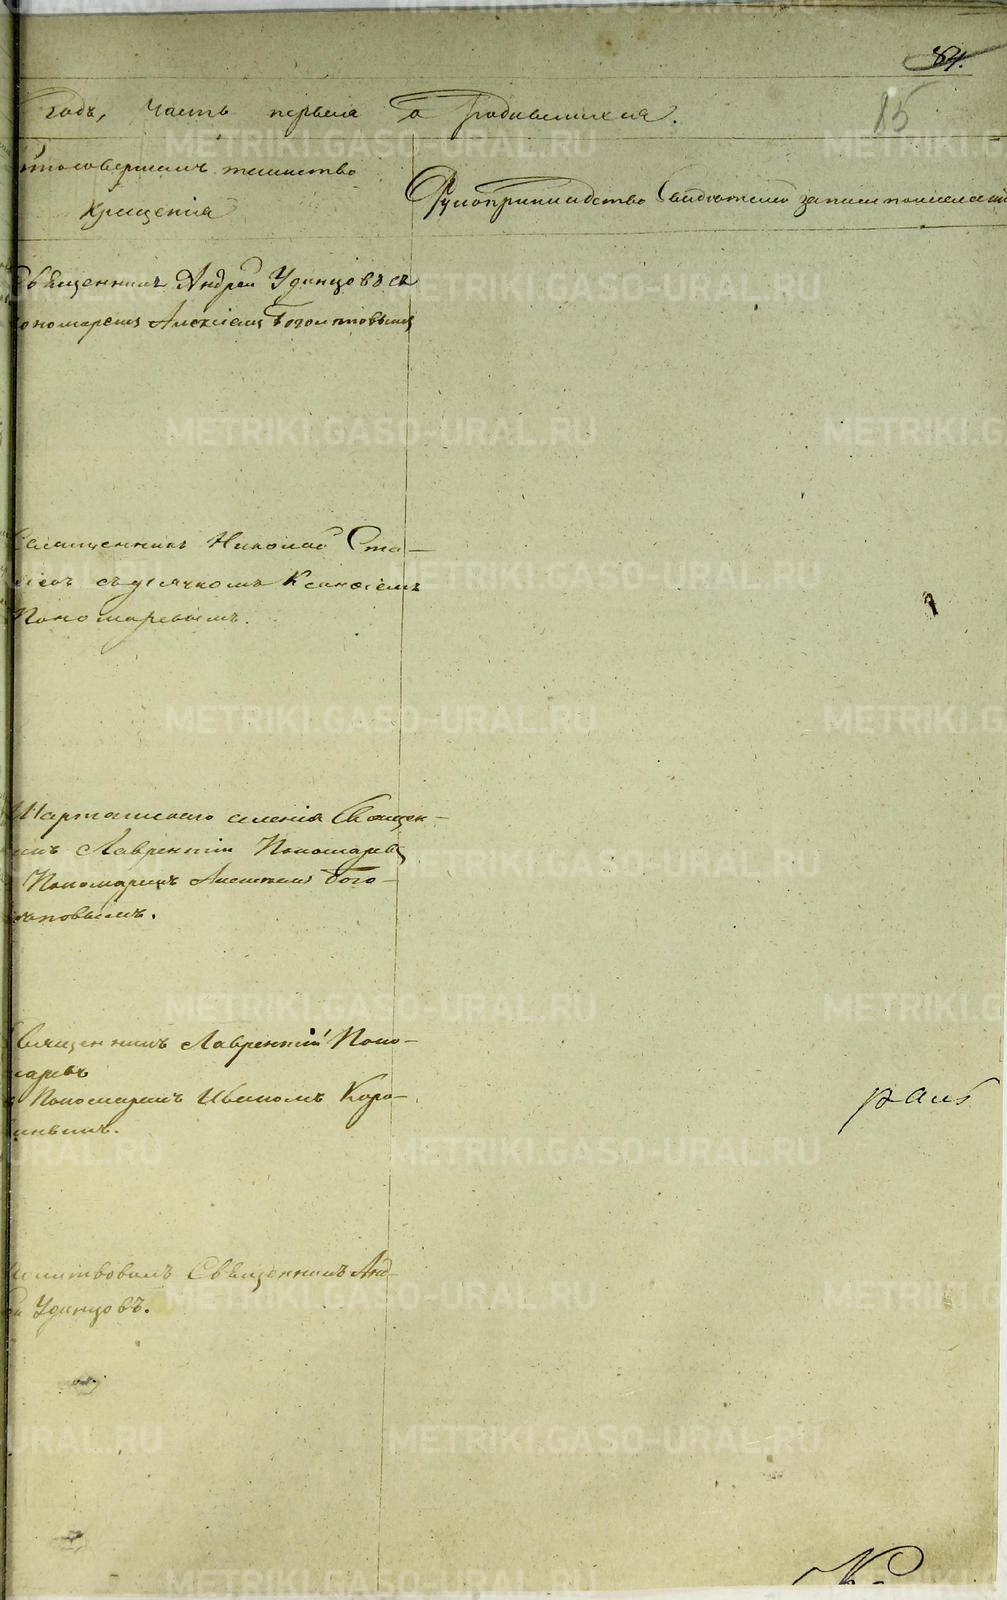 84.
85
годъ, часть первая о родившихся.
Кто совершалъ таинство
крещенія
Рукоприкладство свидѣтелей записи по желанію
Священникъ Андрей Удинцовъ съ
пономаремъ Алексіемъ Боголѣповымъ
Священникъ Николай Ста-
съ дьячкомъ
Пономаревымъ.
Шарташскаго селенія Священ-
никъ Лаврентій Пономаревъ
Пономаремъ Алексіемъ Бого-
Священникъ Лаврентій Поно-
маревъ
Пономаремъ Иваномъ Коро-
Молитвовалъ Священникъ Анд-
рей Удинцовъ.
METRIKI.GASO-URAL.RU